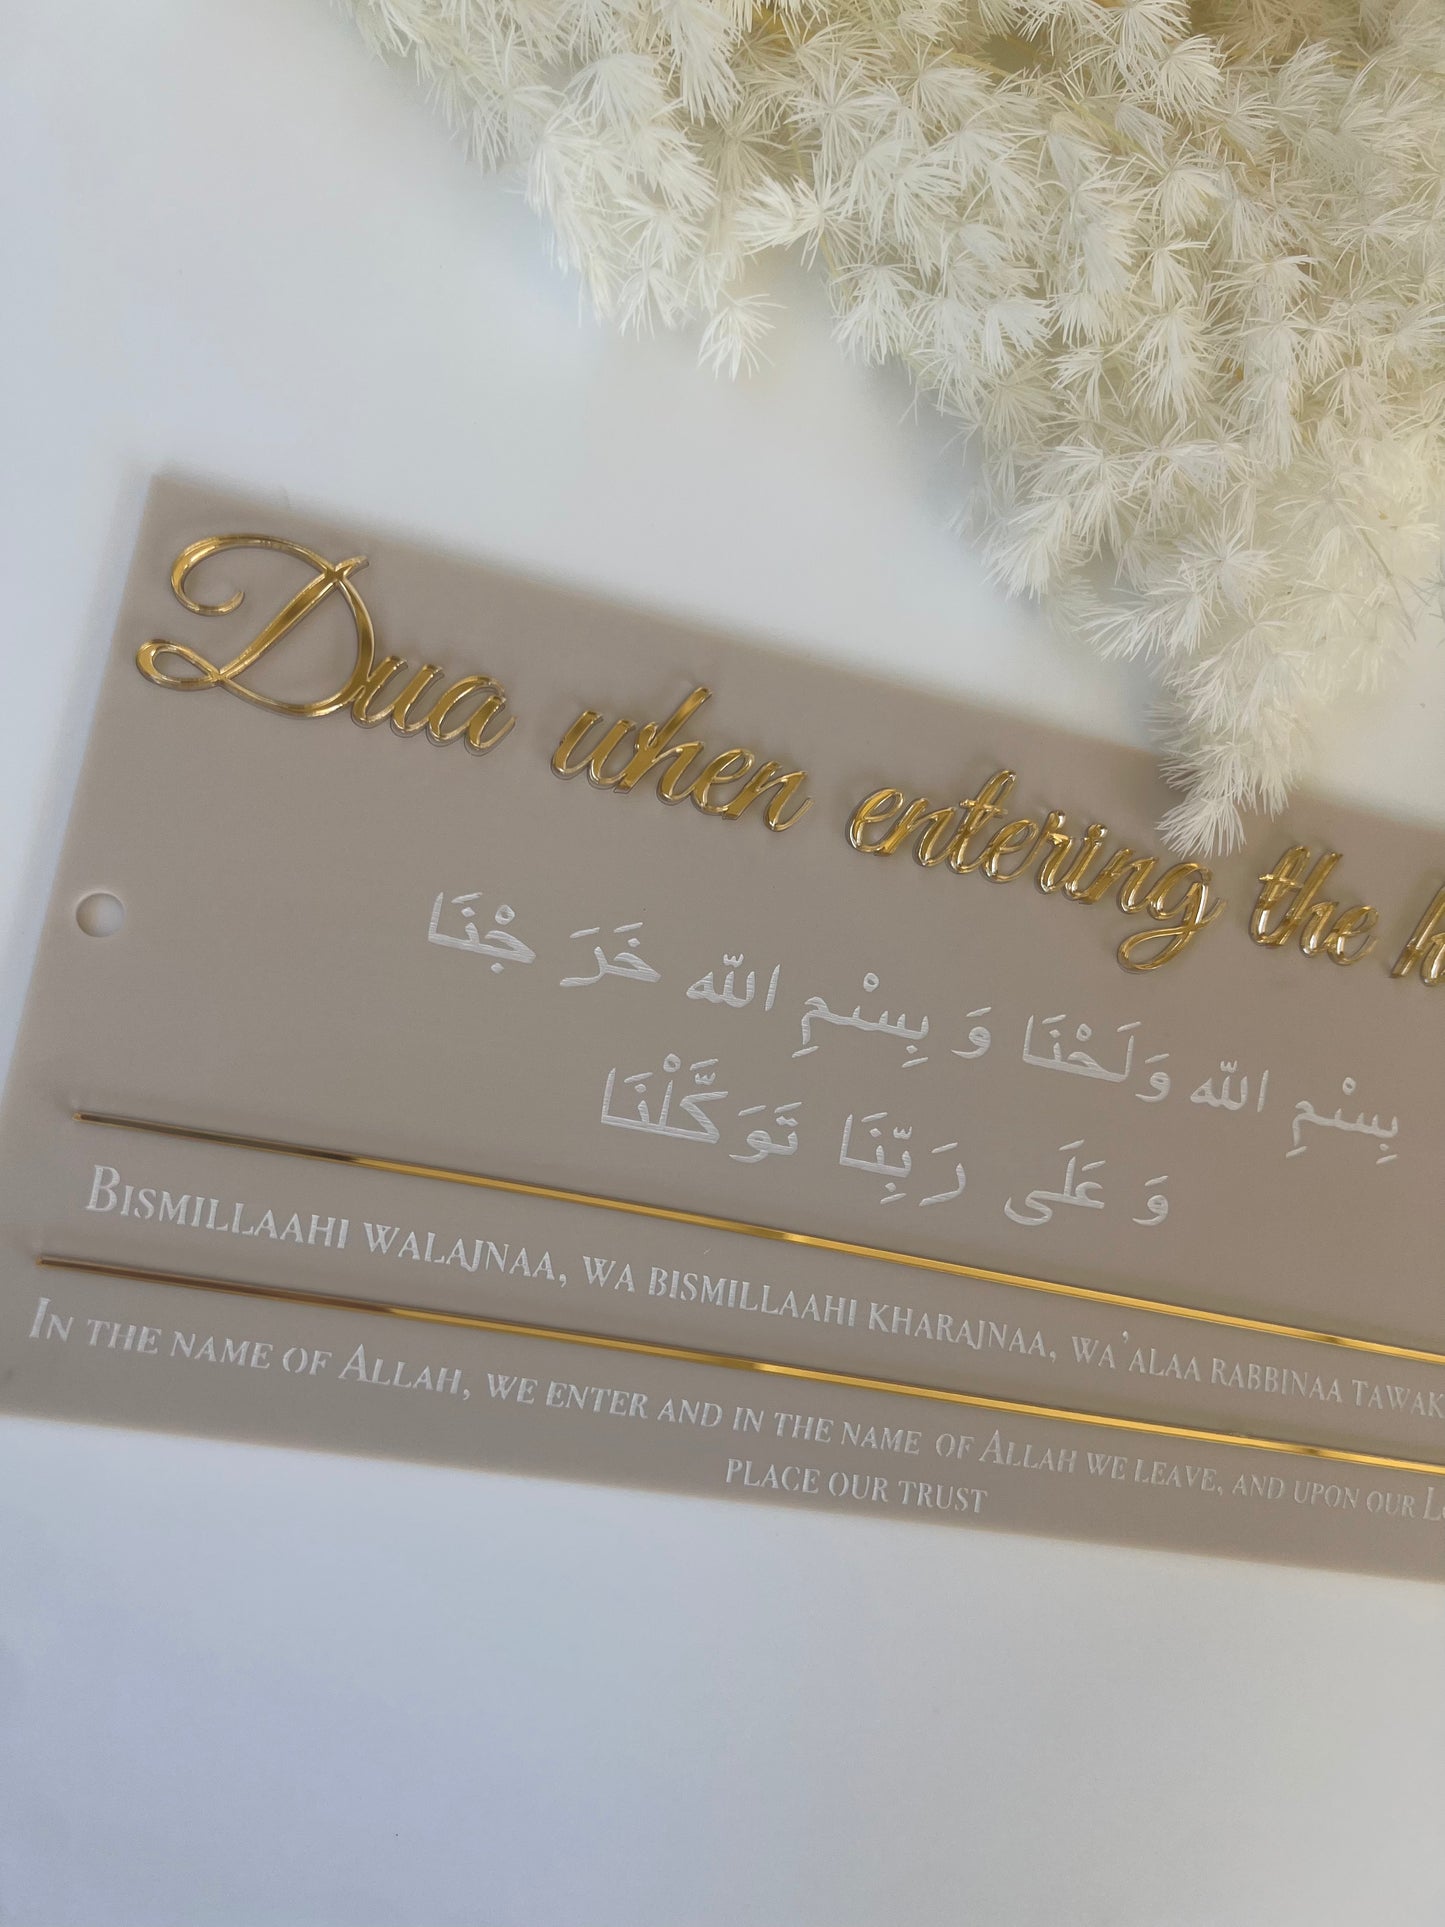 Dua when entering the h
بِسْمِ اللّٰه وَلَحْنَا وَ بِسْمِ اللّٰه خَرَ جْنَا
وَ عَلَى رَبِّنَا تَوَكَّلْنَا
Bismillaahi walajnaa, wa bismillaahi kharajnaa, wa'alaa rabbinaa tawak
In the name of Allah, we enter and in the name of Allah we leave, and upon our Lo
place our trust